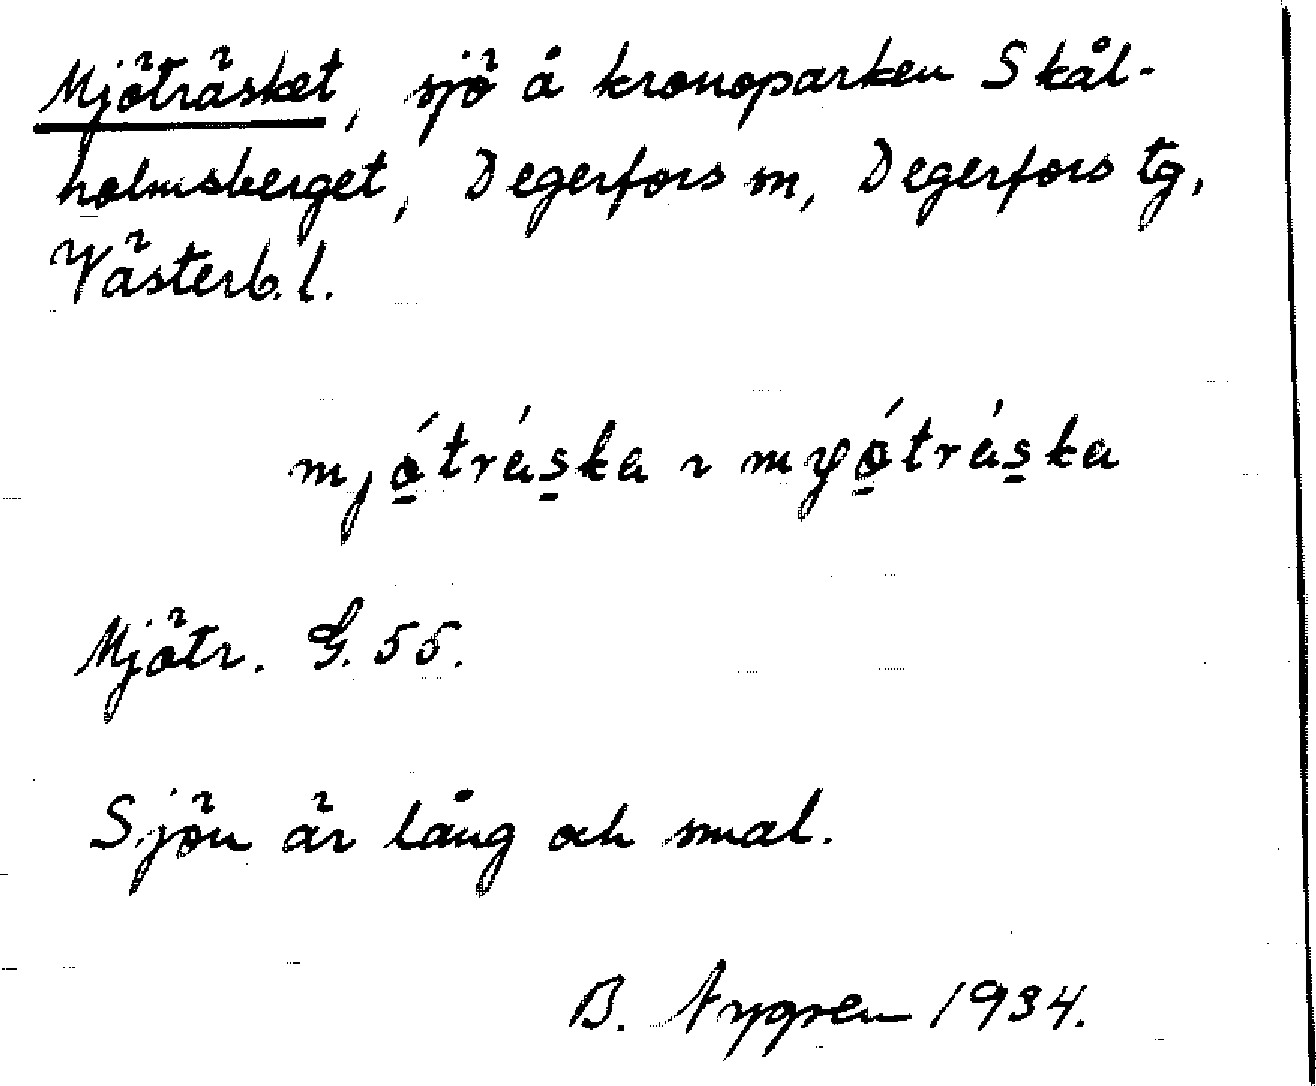 Mjöträsket, sjö å kronoparken Skål-
holmsberget, Degerfors sn, Degerfors tg,
Västerb. l.
mjo̱´tra´s̱ka ~ myo̱´tra´s̱ka
Mjötr. G. 55.
Sjön är lång och smal.
B. Nygren 1934.